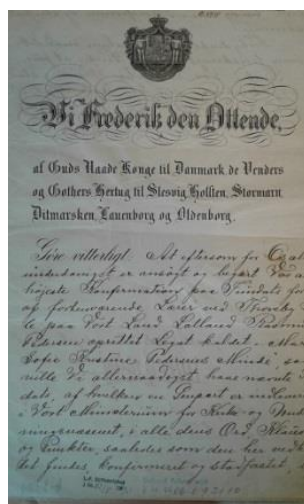 Vi Frederik den Ottende,
af Guds Naade Konge til Danmark, de Venders
og Gothers, Hertug til Slesvig, Holsten, Stormarn,
Ditmarsken, Lauenborg og Oldenborg.
Gøre vitterligt: At eftersom for Os al-
underdanigst er ansøgt og begjært Vor al-
højeste Konfirmation paa Fundats for
af forhenværende Lærer ved Thoreby
le paa Vort Land Lolland Rasmus
Pedersen oprettet Legat kaldet "Mar
Sofie Kristine Pedersens Minde", sa
ville Vi allernaadigst have nævnte
dats, af hvilken en Genpart er indleve
i Vort Ministerium for Kirke- og Unde
ningsvæsenet, i alle dens Ord, Klausu
og Punkter, saaledes som den her vedh
tet findes, konfirmeret og stadfæstet,